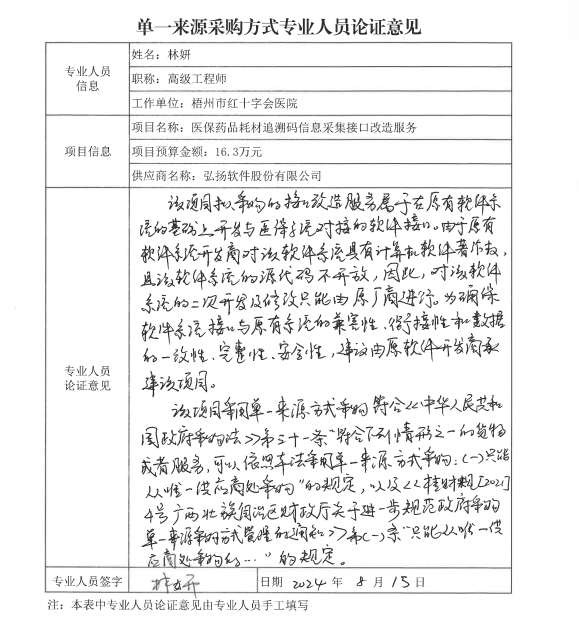 单一来源采购方式专业人员论证意见
专业人员
信息
姓名：林妍
职称：高级工程师
工作单位：梧州市红十字会医院
项目信息
项目名称：医保药品耗材追溯码信息采集接口改造服务
项目预算金额：16.3万元
供应商名称：弘扬软件股份有限公司
专业人员
论证意见
该项目拟采购的接口改造服务属于在原有软件系
统的基础上开发与医保系统对接的软件接口。由于原有
软件系统开发商对该软件系统具有计算机软件著作权，
且该软件系统的源代码不开放，因此，对该软件
系统的二次开发及修改只能由原厂商进行。为确保
软件系统接口与原有系统的兼容性、保持接性和数据
的一致性、完整性、安全性，建议由原软件开发商承
建该项目。
该项目采用单一来源方式采购符合《中华人民共和
国政府采购法》第三十一条"符合下列情形之一的货物
或者服务，可以依照本法采用单一来源方式采购：（一）只能
从唯一供应商处采购"的规定，以及《桂财规[2021]
4号广西壮族自治区财政厅关于进一步规范政府采购
单一来源采购方式管理的通知》第（一）条"只能从唯一供
应商处采购的…"的规定。
专业人员签字
林妍
日期 2024 年 8 月 15 日
注：本表中专业人员论证意见由专业人员手工填写